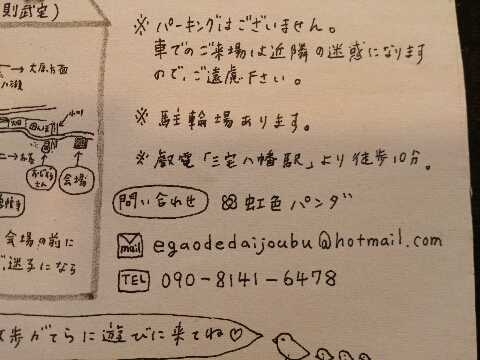 則武定)
※ パーキングはございません。
車でのご来場は近隣の迷惑になります
ので、ご遠慮下さい。
→ 大原方面
※ 駐輪場あります。
畑
田んぼ
※ 叡電「三宅八幡駅」より徒歩10分。
おじぞうさん
会場
問い合わせ 虹色パンダ
会場の前に
mail egaodedaijoubu@hotmail.com
迷子になら
TEL 090-8141-6478
歩がてらに遊びに来てね♡